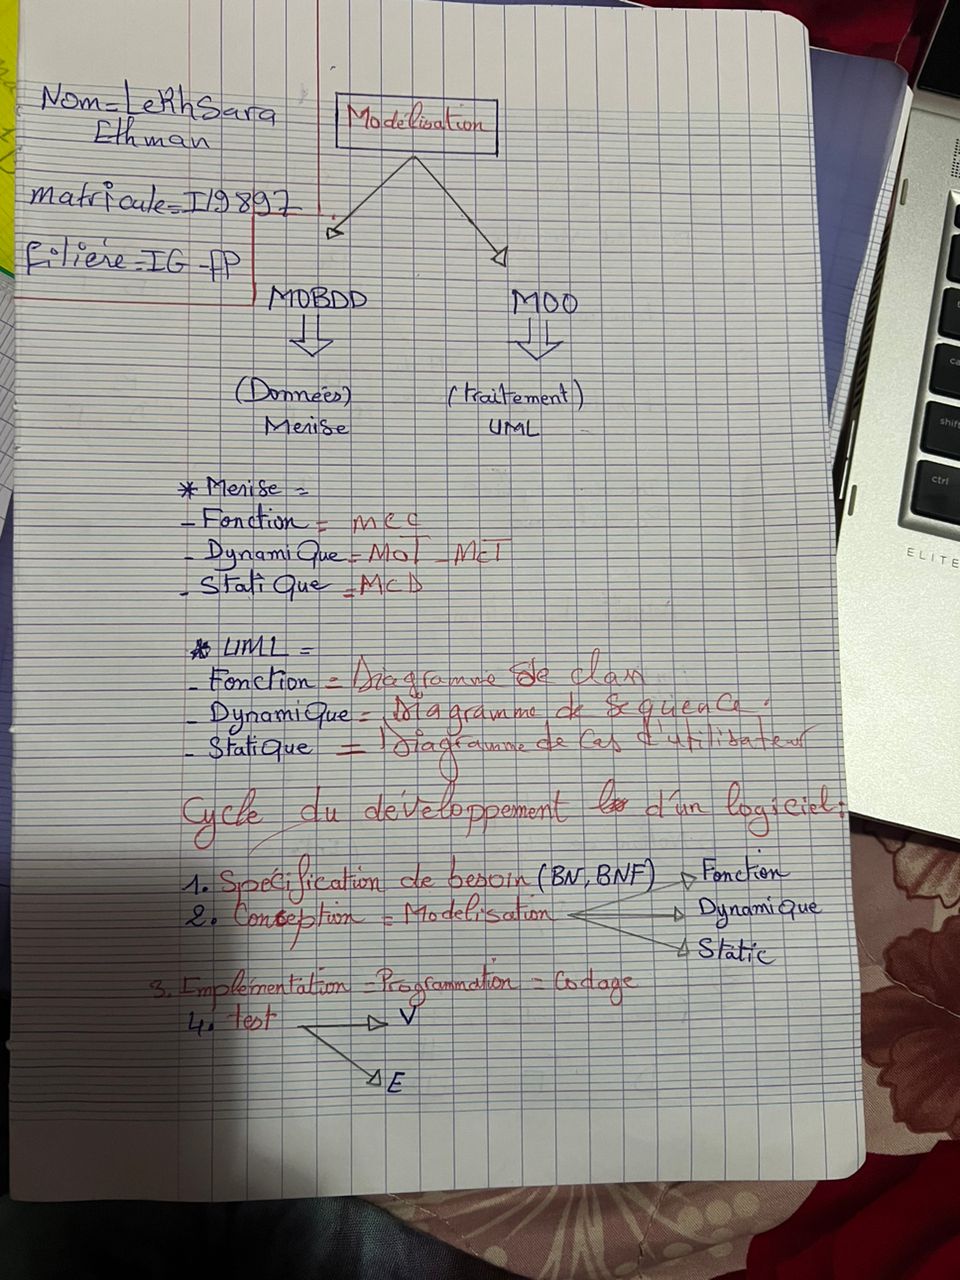 Nom=LeRhSara
Ethman
Modélisation
matricule=I19897
filière=IG-PP
MOBDD
MOO
(Données)
(traitement)
Merise
UML
* Merise =
- Fonction = MCC
- DynamiQue=MOT-MCT
- StatiQue =MCD
* UML =
- Fonction = Diagramme de class
- DynamiQue= Diagramme de Sequence.
- StatiQue = Diagramme de Cas d'utilisateur
Cycle du développement d'un logiciel:
1. Spécification de besoin (BN, BNF)
Fonction
2. Conception = Modélisation
DynamiQue
Static
3. Implémentation =Programmation = Codage
4. test
V
E
shift
ctrl
ELITE